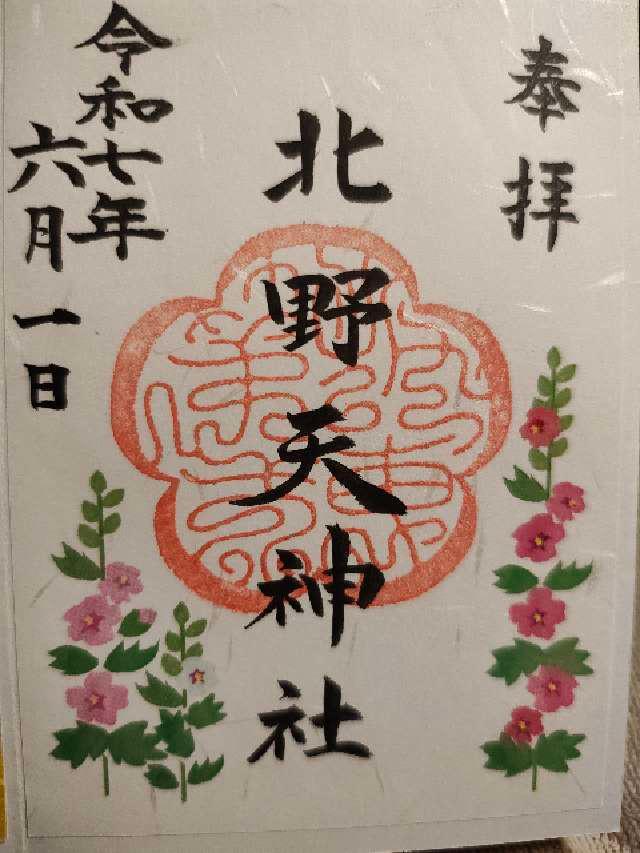 奉拝
北野天神社
令和七年
六月一日